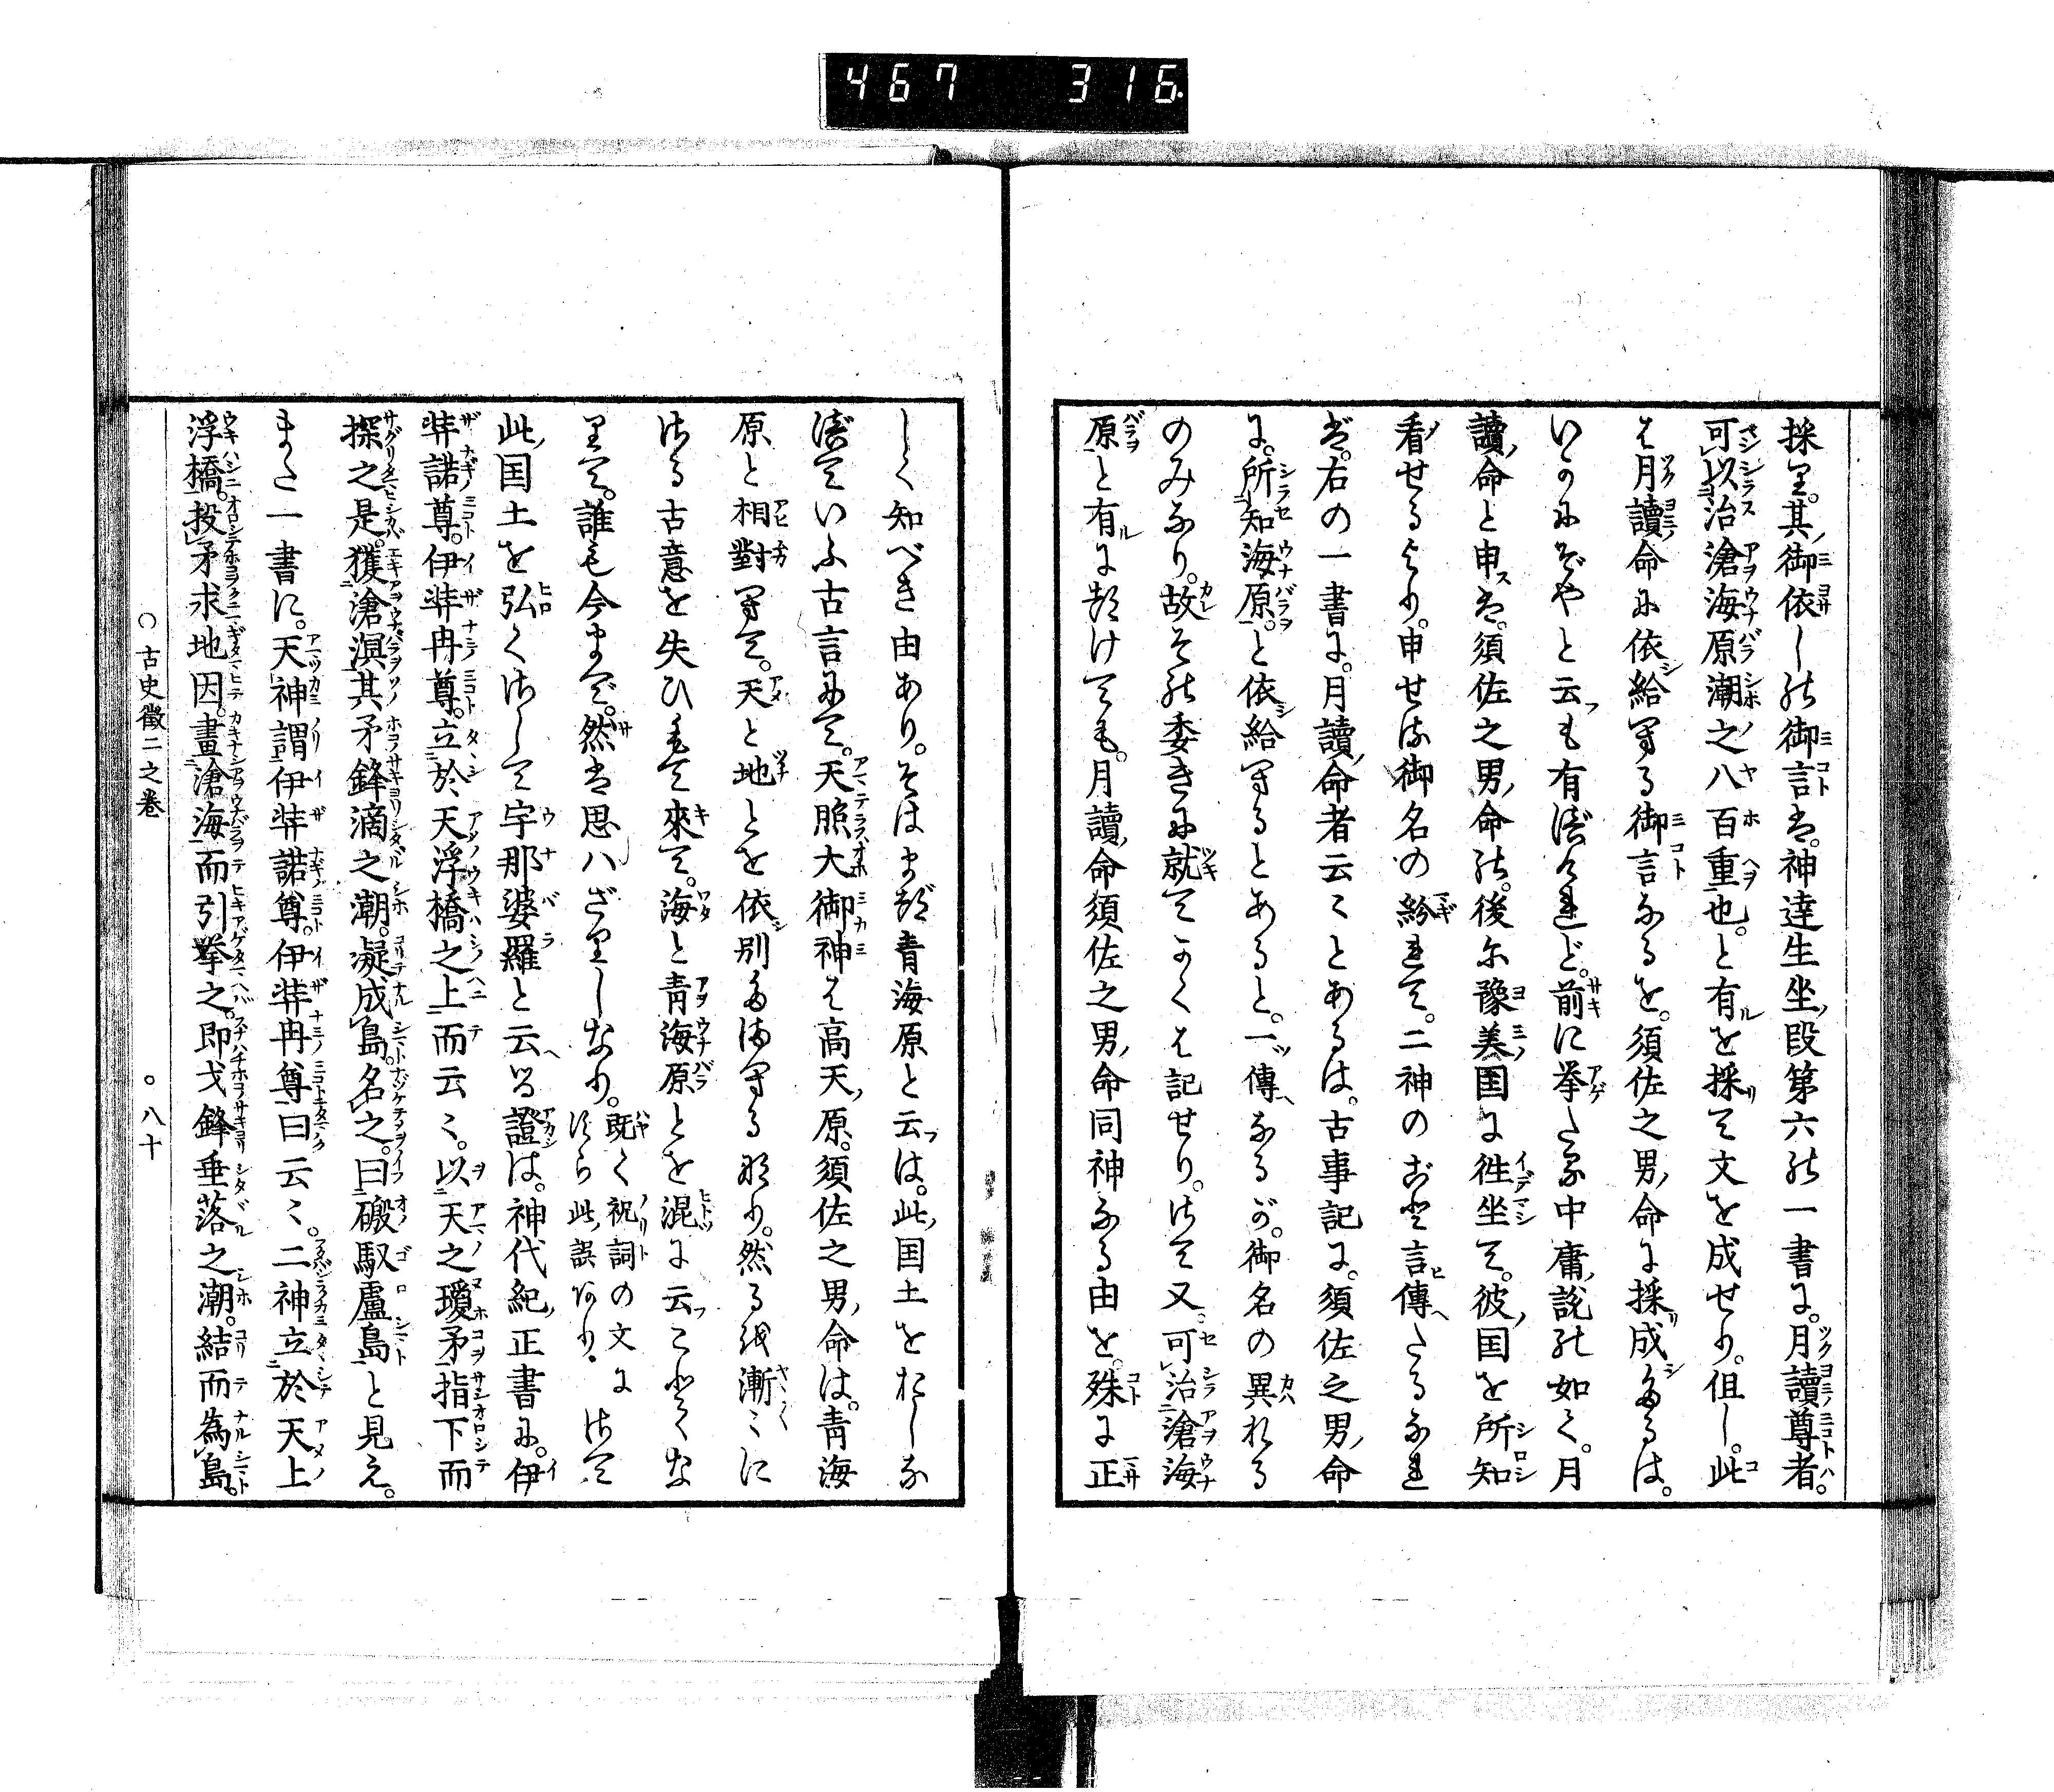 467 316
採て。其御依しの御言は。神達生坐段第六の一書に。月讀尊者。
可以治滄海原潮之八百重也。と有を採て文を成せり。但し。此
は月讀命に依給へる御言なるを。須佐之男命に採成たるは。
いかにぞやと云も有べけれど。前に挙たる中庸説の如く。月
讀命と申は。須佐之男命の。後に豫美国に往坐て。彼国を所知
看せるより。申せる御名の紛れて。二神のごと言傳たるなれ
ば。右の一書に。月讀命者云〻とあるは。古事記に。須佐之男命
に。所知海原。と依給へるとあると。一傳なるが。御名の異れる
のみなり。故その委きに就てかくは記せり。さて又。可治滄海
原と有に就ても。月讀命須佐之男命同神なる由を。殊に正
しく知べき由あり。そはまづ青海原と云は。此国土をおしな
べていふ古言にて。天照大御神は高天原。須佐之男命は。青海
原と相對へて。天と地とを依別たまへる也。然るを漸〻に
さる古意を失ひもて來て。海と青海原とを混に云ことゝな
りて。誰も今まで。然は思ハざりしなり。既く祝詞の文にさへすら此誤あり。さて
此国土を弘くさして宇那婆羅と云へる證は。神代紀正書に。伊
弉諾尊。伊弉冉尊。立於天浮橋之上而云〻。以天之瓊矛指下而
探之是獲滄溟其矛鋒滴之潮。凝成島。名之。曰磤馭盧島と見え。
また一書に。天神謂伊弉諾尊。伊弉冉尊曰云〻。二神立於天上
浮橋。投矛求地因畫滄海而引挙之。即戈鋒垂落之潮。結而為島。
○古史徴二之巻 ○八十